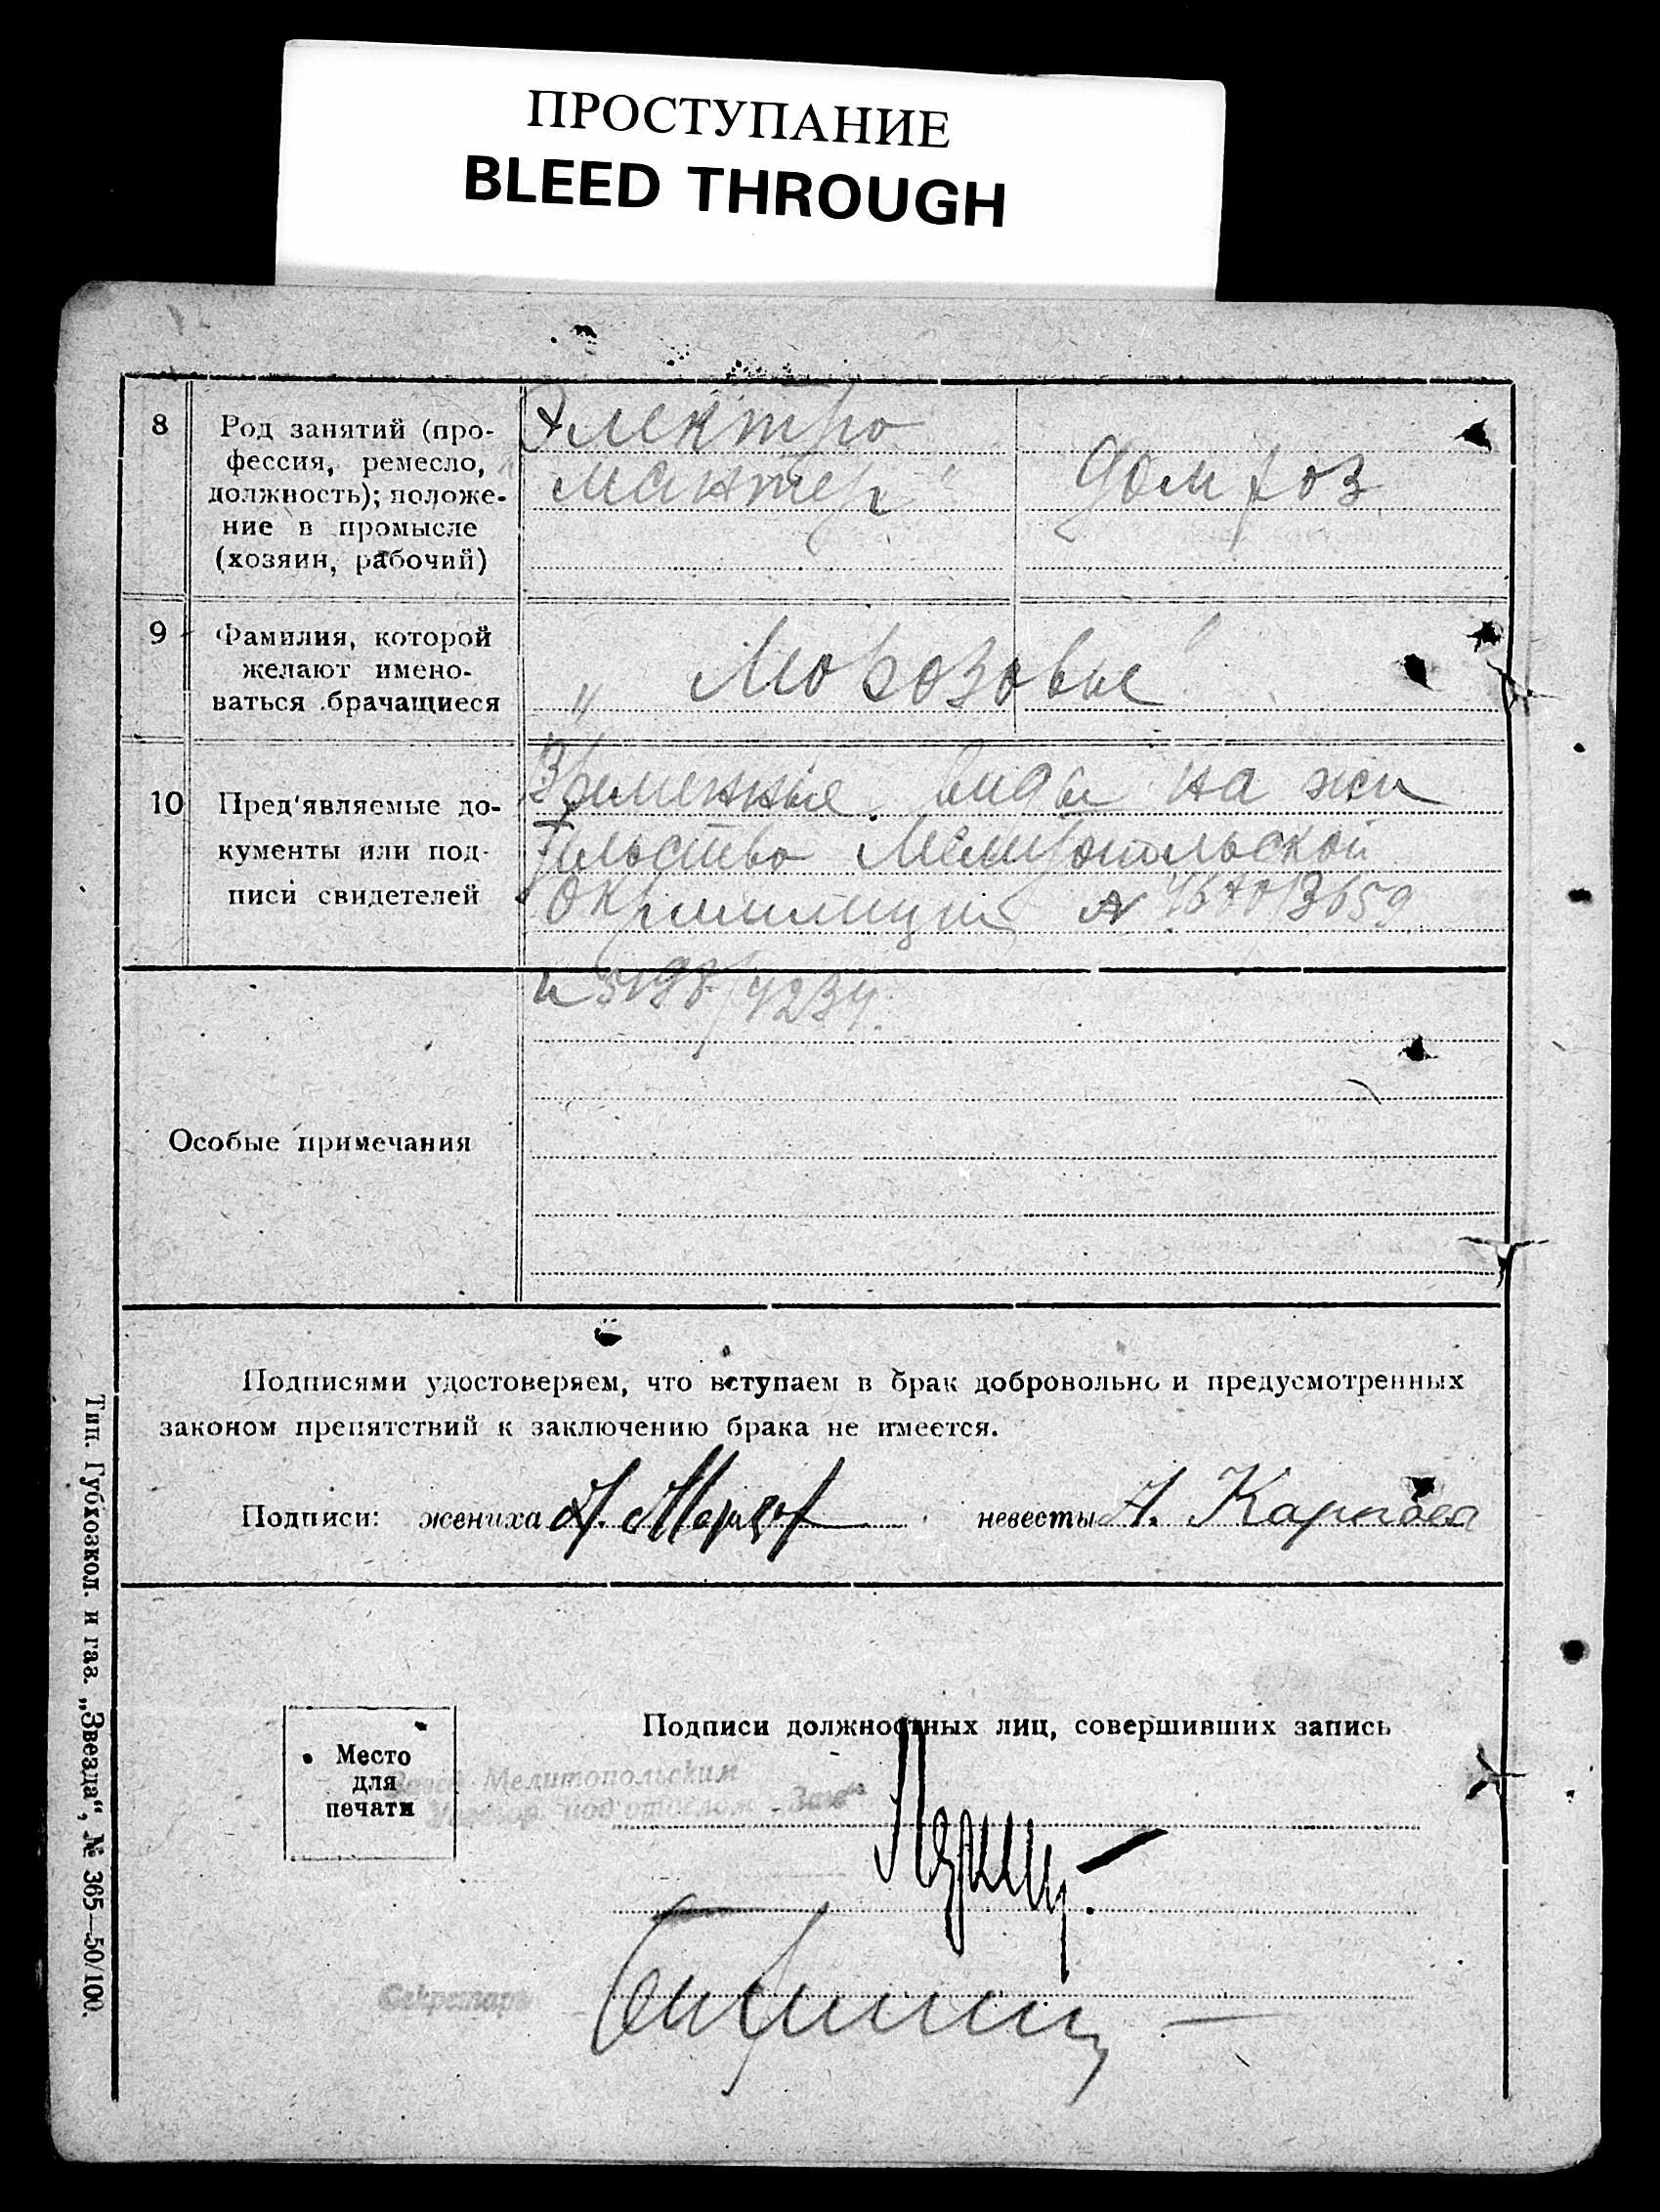 ПРОСТУПАНИЕ
BLEED THROUGH
8
Род занятий (про-
фессия, ремесло,
должность); положе-
ние в промысле
(хозяин, рабочий)
Электро
мантер
домхоз
9
Фамилия, которой
желают имено-
ваться брачащиеся
" Морозовые
10
Пред'являемые до-
кументы или под-
писи свидетелей
Временные виды на жи
тельство Мелитопольской
Окрмилиции N
и 5198/4234.
Особые примечания
Подписями удостоверяем, что вступаем в брак добровольно и предусмотренных
законом препятствий к заключению брака не имеется.
Подписи: жениха невесты А. Карпова
Подписи должностных лиц, совершивших запись
Место
для
печати
Мелитопольским
под'отделом
Секретарь
Тип. Губкозкол. и газ. „Звезда“, № 365—50/100.